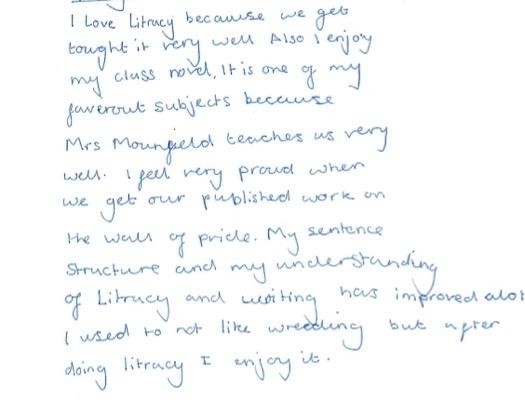 I Love Litracy because we get
tought it very well Also I enjoy
my class novel, It is one of my
faverout subjects because
Mrs Mounfield teaches us very
well. I feel very proud when
we get our published work on
the wall of pride. My sentence
Structure and my understanding
of Litracy and writing has improved alot
I used to not like wreeding but after
doing litracy I enjoy it.